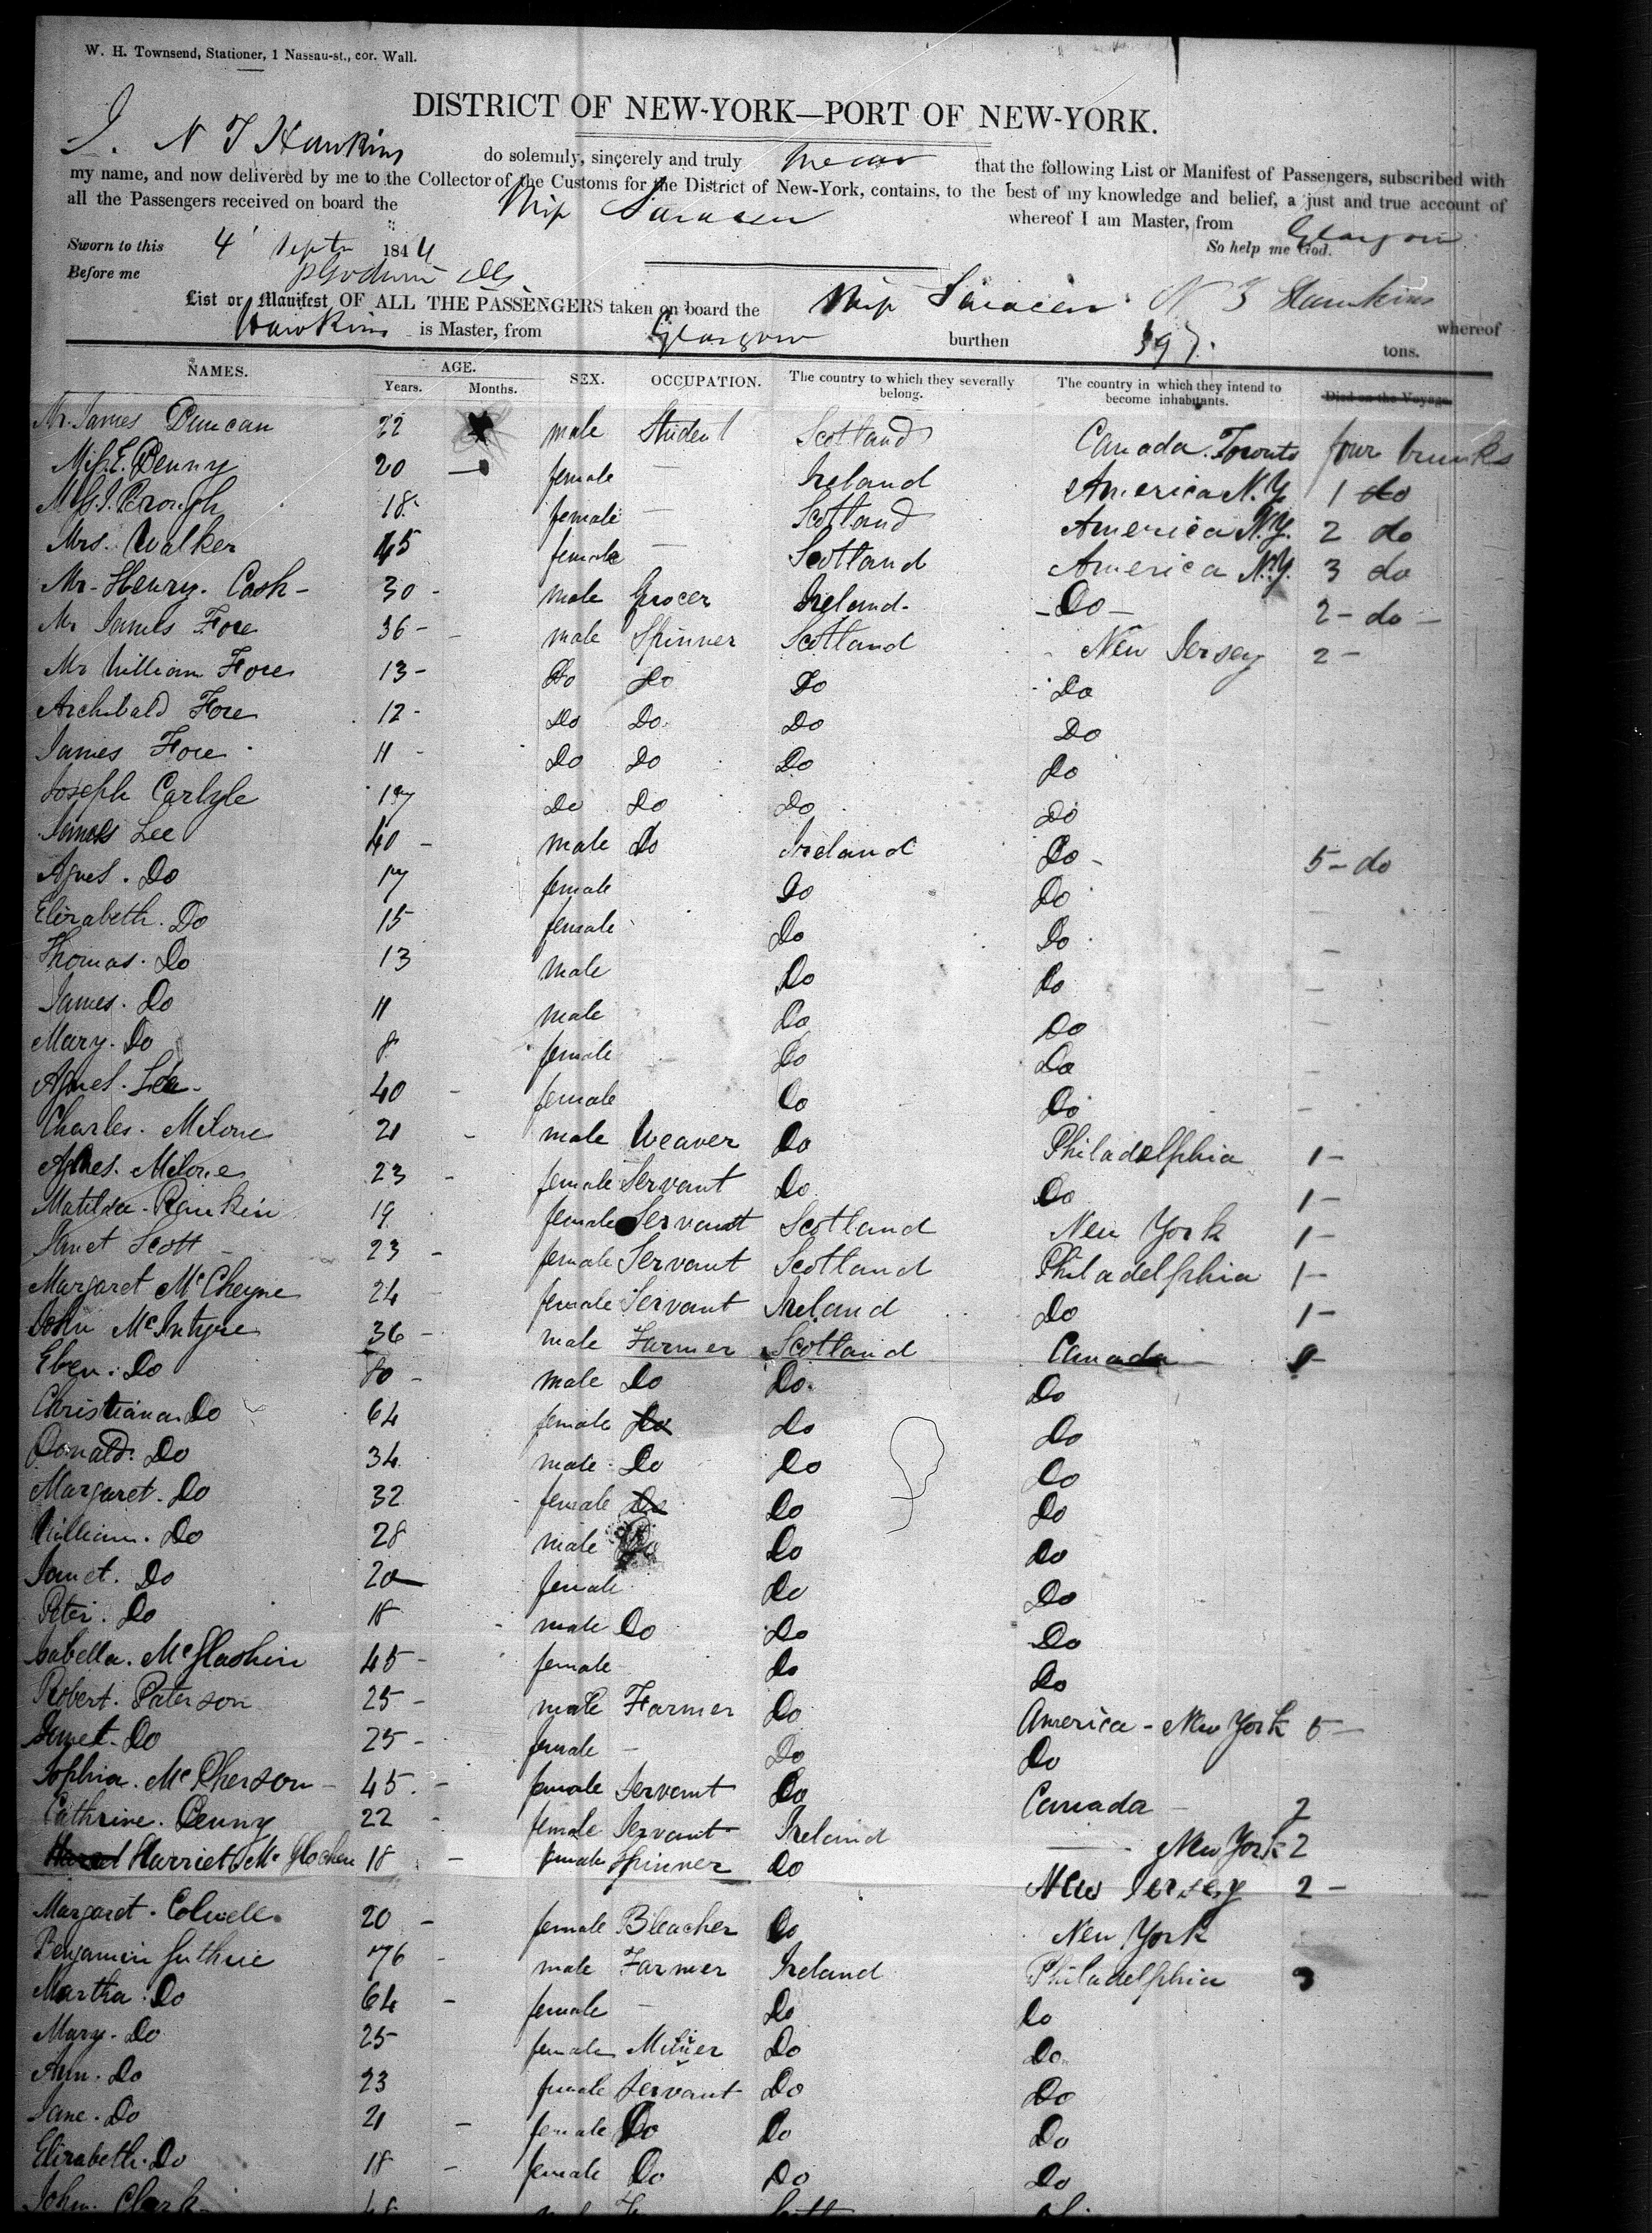 W. H. Townsend, Stationer, 1 Nassau-st., cor. Wall.
DISTRICT OF NEW-YORK—PORT OF NEW-YORK.
I. N T Hawkins do solemnly, sincerely and truly swear that the following List or Manifest of Passengers, subscribed with
my name, and now delivered by me to the Collector of the Customs for the District of New-York, contains, to the best of my knowledge and belief, a just and true account of
all the Passengers received on board the Ship Saracen whereof I am Master, from Glasgow
Sworn to this 4 Septr 1844 So help me God.
Before me
List or Manifest OF ALL THE PASSENGERS taken on board the Ship Saracen N T Hawkins whereof
Hawkins is Master, from Glasgow burthen 397 tons.
NAMES. AGE. Years. Months. SEX. OCCUPATION. The country to which they severally belong. The country in which they intend to become inhabitants. Died on the Voyage.
Mr. James Duncan 22 male Student Scotland Canada. Toronto four trunks
Miss. E. Denny 20 — female — Ireland America N.Y. 1 do
Miss. J. Brough 18 female — Scotland America N.Y. 2 do
Mrs. Walker 45 female — Scotland America N.Y. 3 do
Mr - Henry. Cash - 30 - male Grocer Ireland - - Do - 2 - do -
Mr James Fore 36 - male Spinner Scotland New Jersey 2 -
Mr William Fore 13 - Do Do Do Do
Archibald Fore 12 - Do Do Do Do
James Fore 11 - Do Do Do Do
Joseph Carlyle 17 Do Do Do Do
James Lee 40 - male Do Ireland Do - 5 - do
Agnes. Do 17 female Do Do
Elizabeth. Do 15 female Do Do
Thomas. Do 13 male Do Do
James. Do 11 male Do Do
Mary. Do 8 female Do Do
Agnes. Lee 40 - female Do Do
Charles. Melone 21 - male Weaver Do Philadelphia 1 -
Agnes. Melone 23 - female Servant Do Do 1 -
Matilda. Rankin 19 female Servant Scotland New York 1 -
Janet Scott 23 - female Servant Scotland Philadelphia 1 -
Margaret McCheyne 24 female Servant Ireland Do 1 -
John McIntyre 36 - male Farmer Scotland Canada
Eben. Do 80 - male Do Do Do
Christiana. Do 64 female Do Do Do
Donald. Do 34 male Do Do Do
Margaret. Do 32 female Do Do Do
William. Do 28 male Do Do Do
Janet. Do 20 female Do Do
Peter. Do 18 male Do Do Do
Isabella. McGlashin 45 - female Do Do
Robert. Paterson 25 - male Farmer Do America - New York 5 -
Janet. Do 25 - female - Do Do
Sophia. McPherson - 45 - female Servant Do Canada - 2
Cathrine. Denny 22 female Servant Ireland — New York 2
Harriet. Mc Glochen 18 - female Spinner Do New Jersey 2 -
Margaret. 20 - female Bleacher Do New York
Benjamin Guthrie 76 male Farmer Ireland Philadelphia 3
Martha. Do 64 - female - Do Do
Mary. Do 25 female Do Do
Ann. Do 23 female Servant Do Do
Jane. Do 21 - female Do Do Do
Elizabeth. Do 18 - female Do Do Do
John. Clark